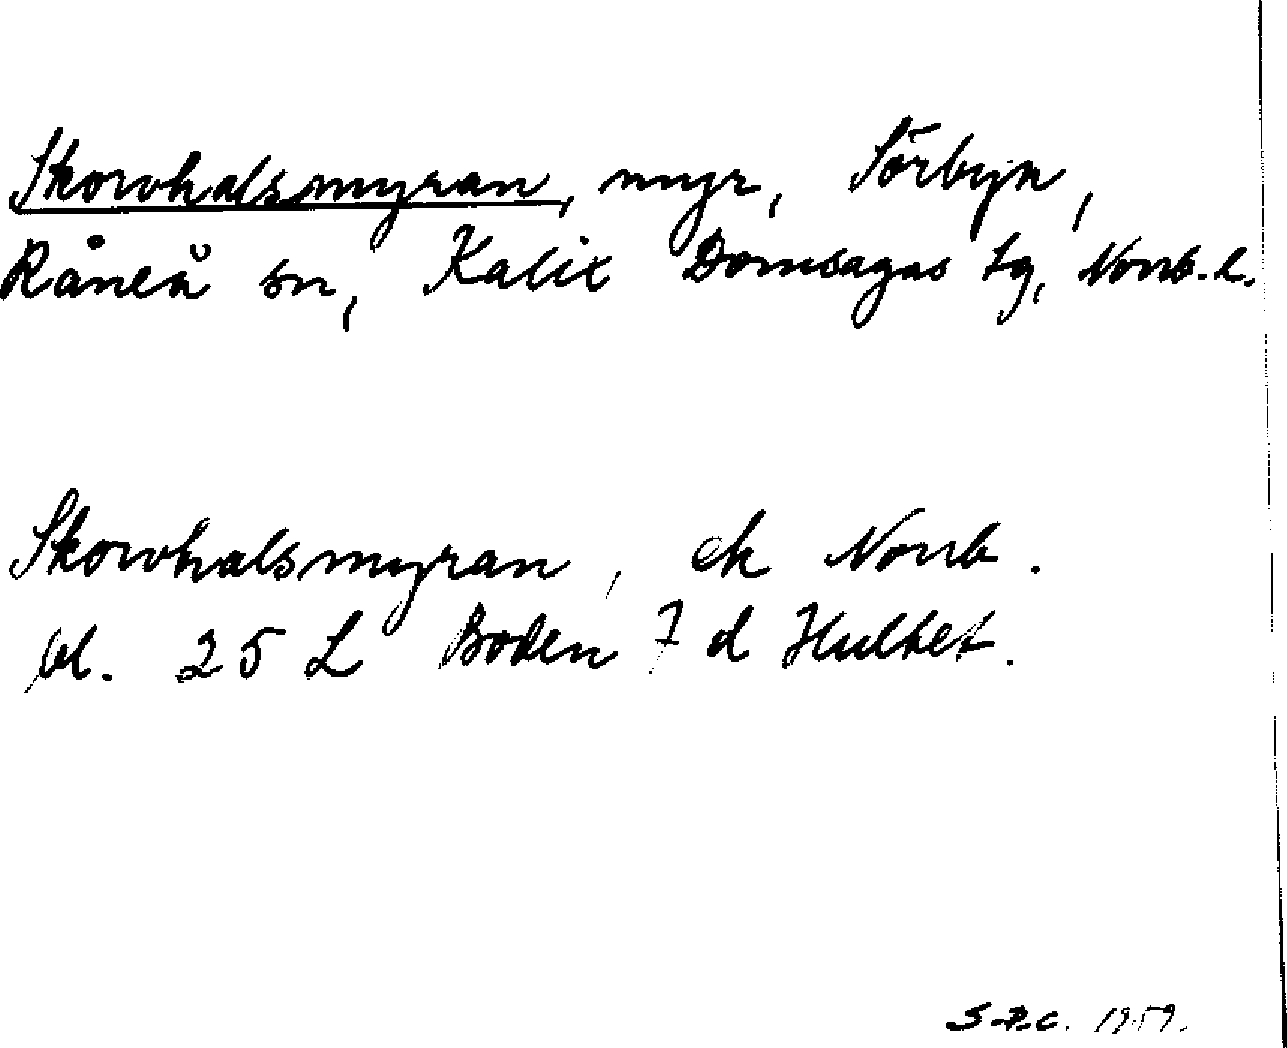 Skorvhalsmyran, myr, Sörbyn,
Råneå sn, Kalix Domsagas tg, Norrb. l.
Skorvhalsmyran, ek Norrb.
bl. 25 L Boden 7 d Hultet.
S.P.C. 1959.